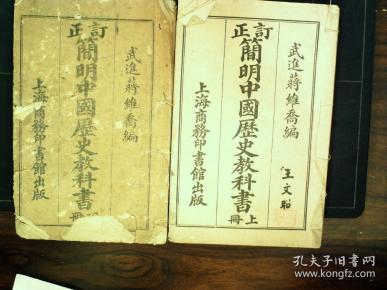 訂正
簡明中國歷史教科書
冊
武進蔣維喬編
上海商務印書館出版
訂正
簡明中國歷史教科書
上冊
武進蔣維喬編
上海商務印書館出版
王文昭
孔夫子旧书网